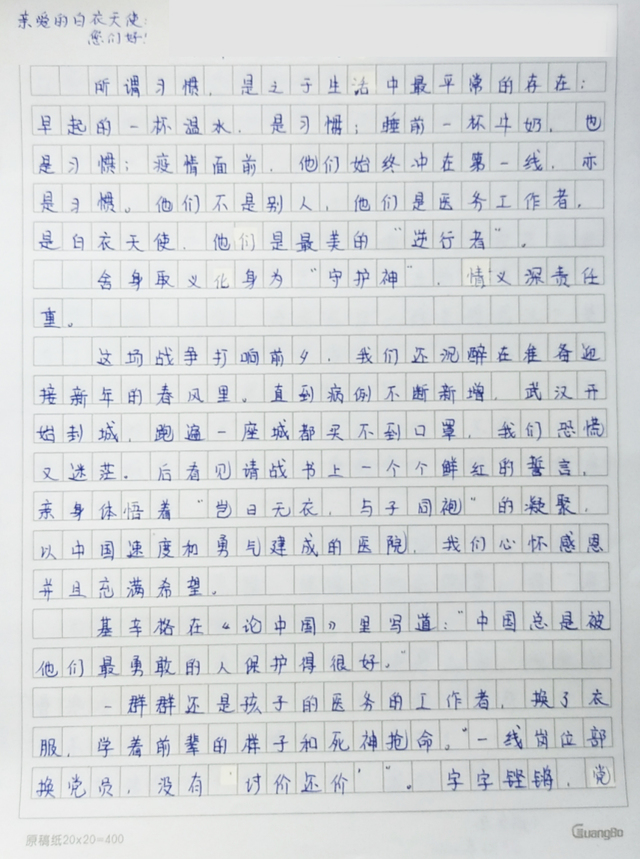 亲爱的白衣天使:
您们好!
所谓习惯，是之于生活中最平常的存在：
早起的一杯温水，是习惯；睡前一杯牛奶，也
是习惯；疫情面前，他们始终冲在第一线，亦
是习惯。他们不是别人，他们是医务工作者，
是白衣天使，他们是最美的“逆行者”。
舍身取义化身为“守护神”，情义深责任
重。
这场战争打响前夕，我们还沉醉在准备迎
接新年的春风里。直到病例不断新增，武汉开
始封城，跑遍一座城都买不到口罩，我们恐慌
又迷茫。后看见请战书上一个个鲜红的誓言，
亲身体悟着“岂曰无衣，与子同袍”的凝聚，
以中国速度和勇气建成的医院，我们心怀感恩
并且充满希望。
基辛格在《论中国》里写道：“中国总是被
他们最勇敢的人保护得很好。”
一群群还是孩子的医务的工作者，换了衣
服，学着前辈的样子和死神抢命。“一线岗位部
换党员，没有‘讨价还价’”。字字铿锵，党
原稿纸20x20=400
GuangBo